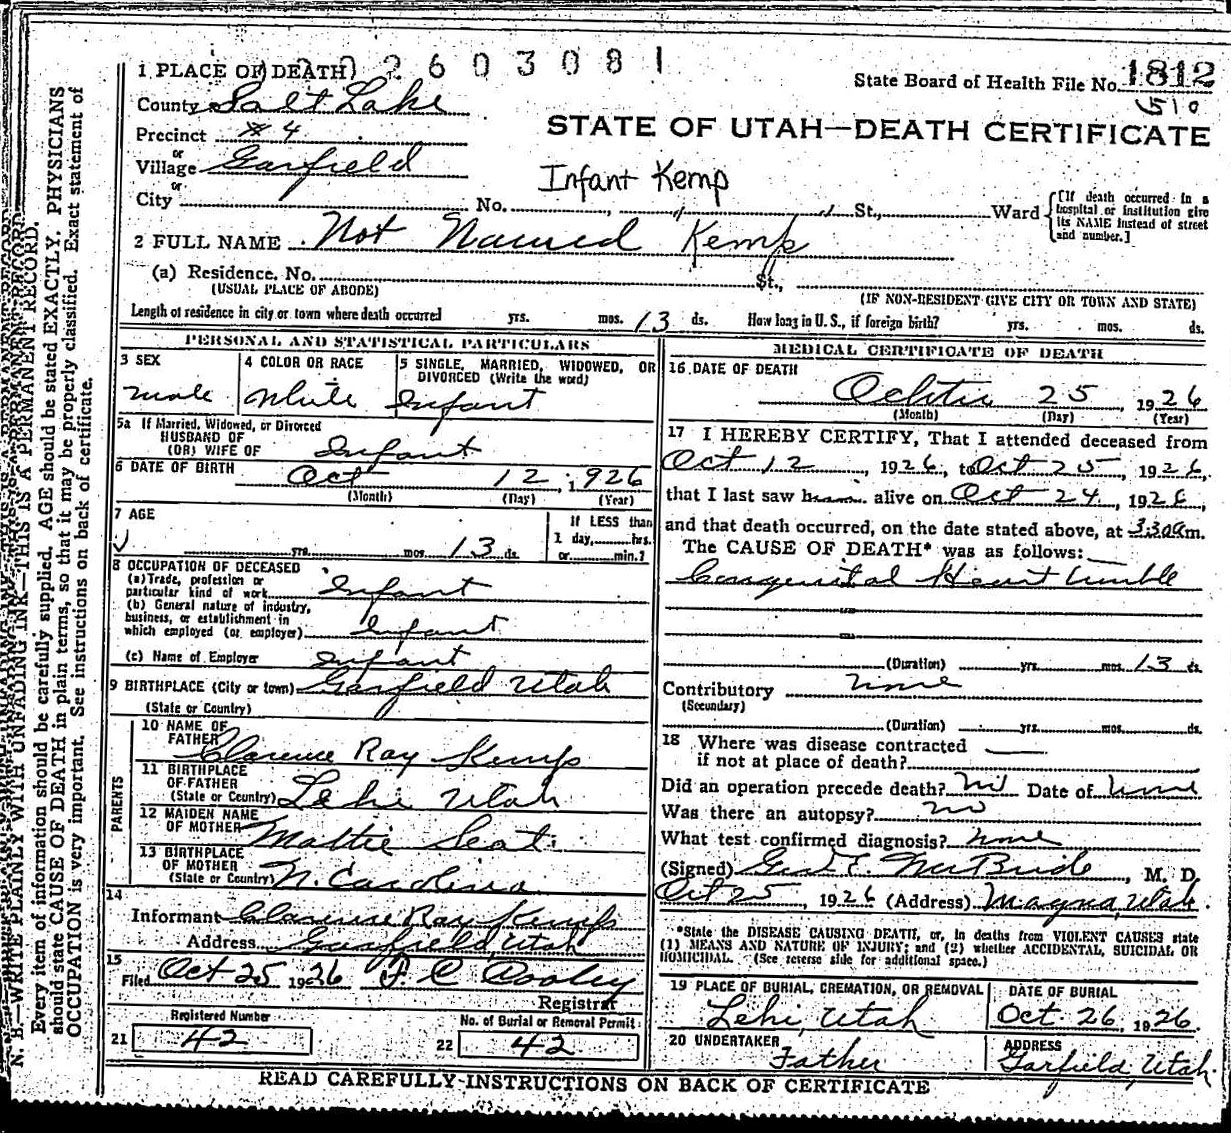 2603081
1 PLACE OF DEATH
State Board of Health File No. 1812
510
County Salt Lake
STATE OF UTAH—DEATH CERTIFICATE
Precinct #4
or
Village Garfield
or
Infant Kemp
City No. St., Ward
[If death occurred in a hospital or institution give its NAME instead of street and number.]
2 FULL NAME Not Named Kemp
(a) Residence. No. St.,
(USUAL PLACE OF ABODE) (IF NON-RESIDENT GIVE CITY OR TOWN AND STATE)
Length of residence in city or town where death occurred yrs. mos. 13 ds. How long in U. S., if foreign birth? yrs. mos. ds.
PERSONAL AND STATISTICAL PARTICULARS
3 SEX
male
4 COLOR OR RACE
White
5 SINGLE, MARRIED, WIDOWED, OR DIVORCED (Write the word)
Infant
5a If Married, Widowed, or Divorced
HUSBAND OF
(OR) WIFE OF Infant
6 DATE OF BIRTH Oct 12, 1926
(Month) (Day) (Year)
7 AGE
yrs. mos. 13 ds.
If LESS than
1 day, hrs.
or min.?
8 OCCUPATION OF DECEASED
(a) Trade, profession or
particular kind of work Infant
(b) General nature of industry,
business, or establishment in
which employed (or employer) Infant
(c) Name of Employer Infant
9 BIRTHPLACE (City or town) Garfield Utah
(State or Country)
PARENTS
10 NAME OF
FATHER Clarence Ray Kemp
11 BIRTHPLACE
OF FATHER
(State or Country) Lehi Utah
12 MAIDEN NAME
OF MOTHER Mattie Seat
13 BIRTHPLACE
OF MOTHER
(State or Country) N. Carolina
14
Informant Clarence Ray Kemp
Address Garfield, Utah
15
Filed Oct 25 1926 F. C. Cooley
Registrar
Registered Number
21 42
No. of Burial or Removal Permit
22 42
MEDICAL CERTIFICATE OF DEATH
16 DATE OF DEATH
25, 1926
(Month) (Day) (Year)
17 I HEREBY CERTIFY, That I attended deceased from
Oct 12, 1926, to Oct 25, 1926,
that I last saw h alive on Oct 24, 1926,
and that death occurred, on the date stated above, at 3:30am.
The CAUSE OF DEATH* was as follows:
Congenital Heart
(Duration) yrs. mos. 13 ds.
Contributory None
(Secondary)
(Duration) yrs. mos. ds.
18 Where was disease contracted
if not at place of death?
Did an operation precede death? no Date of none
Was there an autopsy? no
What test confirmed diagnosis? none
(Signed) Geo E. McBride, M. D.
Oct 25, 1926 (Address) Magna, Utah.
*State the DISEASE CAUSING DEATH, or, in deaths from VIOLENT CAUSES state
(1) MEANS AND NATURE OF INJURY; and (2) whether ACCIDENTAL, SUICIDAL OR
HOMICIDAL. (See reverse side for additional space.)
19 PLACE OF BURIAL, CREMATION, OR REMOVAL
Lehi, Utah
DATE OF BURIAL
Oct. 26, 1926
20 UNDERTAKER
Father
ADDRESS
Garfield, Utah.
READ CAREFULLY INSTRUCTIONS ON BACK OF CERTIFICATE
N. B.—WRITE PLAINLY WITH UNFADING INK—THIS IS A PERMANENT RECORD.
Every item of information should be carefully supplied. AGE should be stated EXACTLY. PHYSICIANS
should state CAUSE OF DEATH in plain terms, so that it may be properly classified. Exact statement of
OCCUPATION is very important. See instructions on back of certificate.